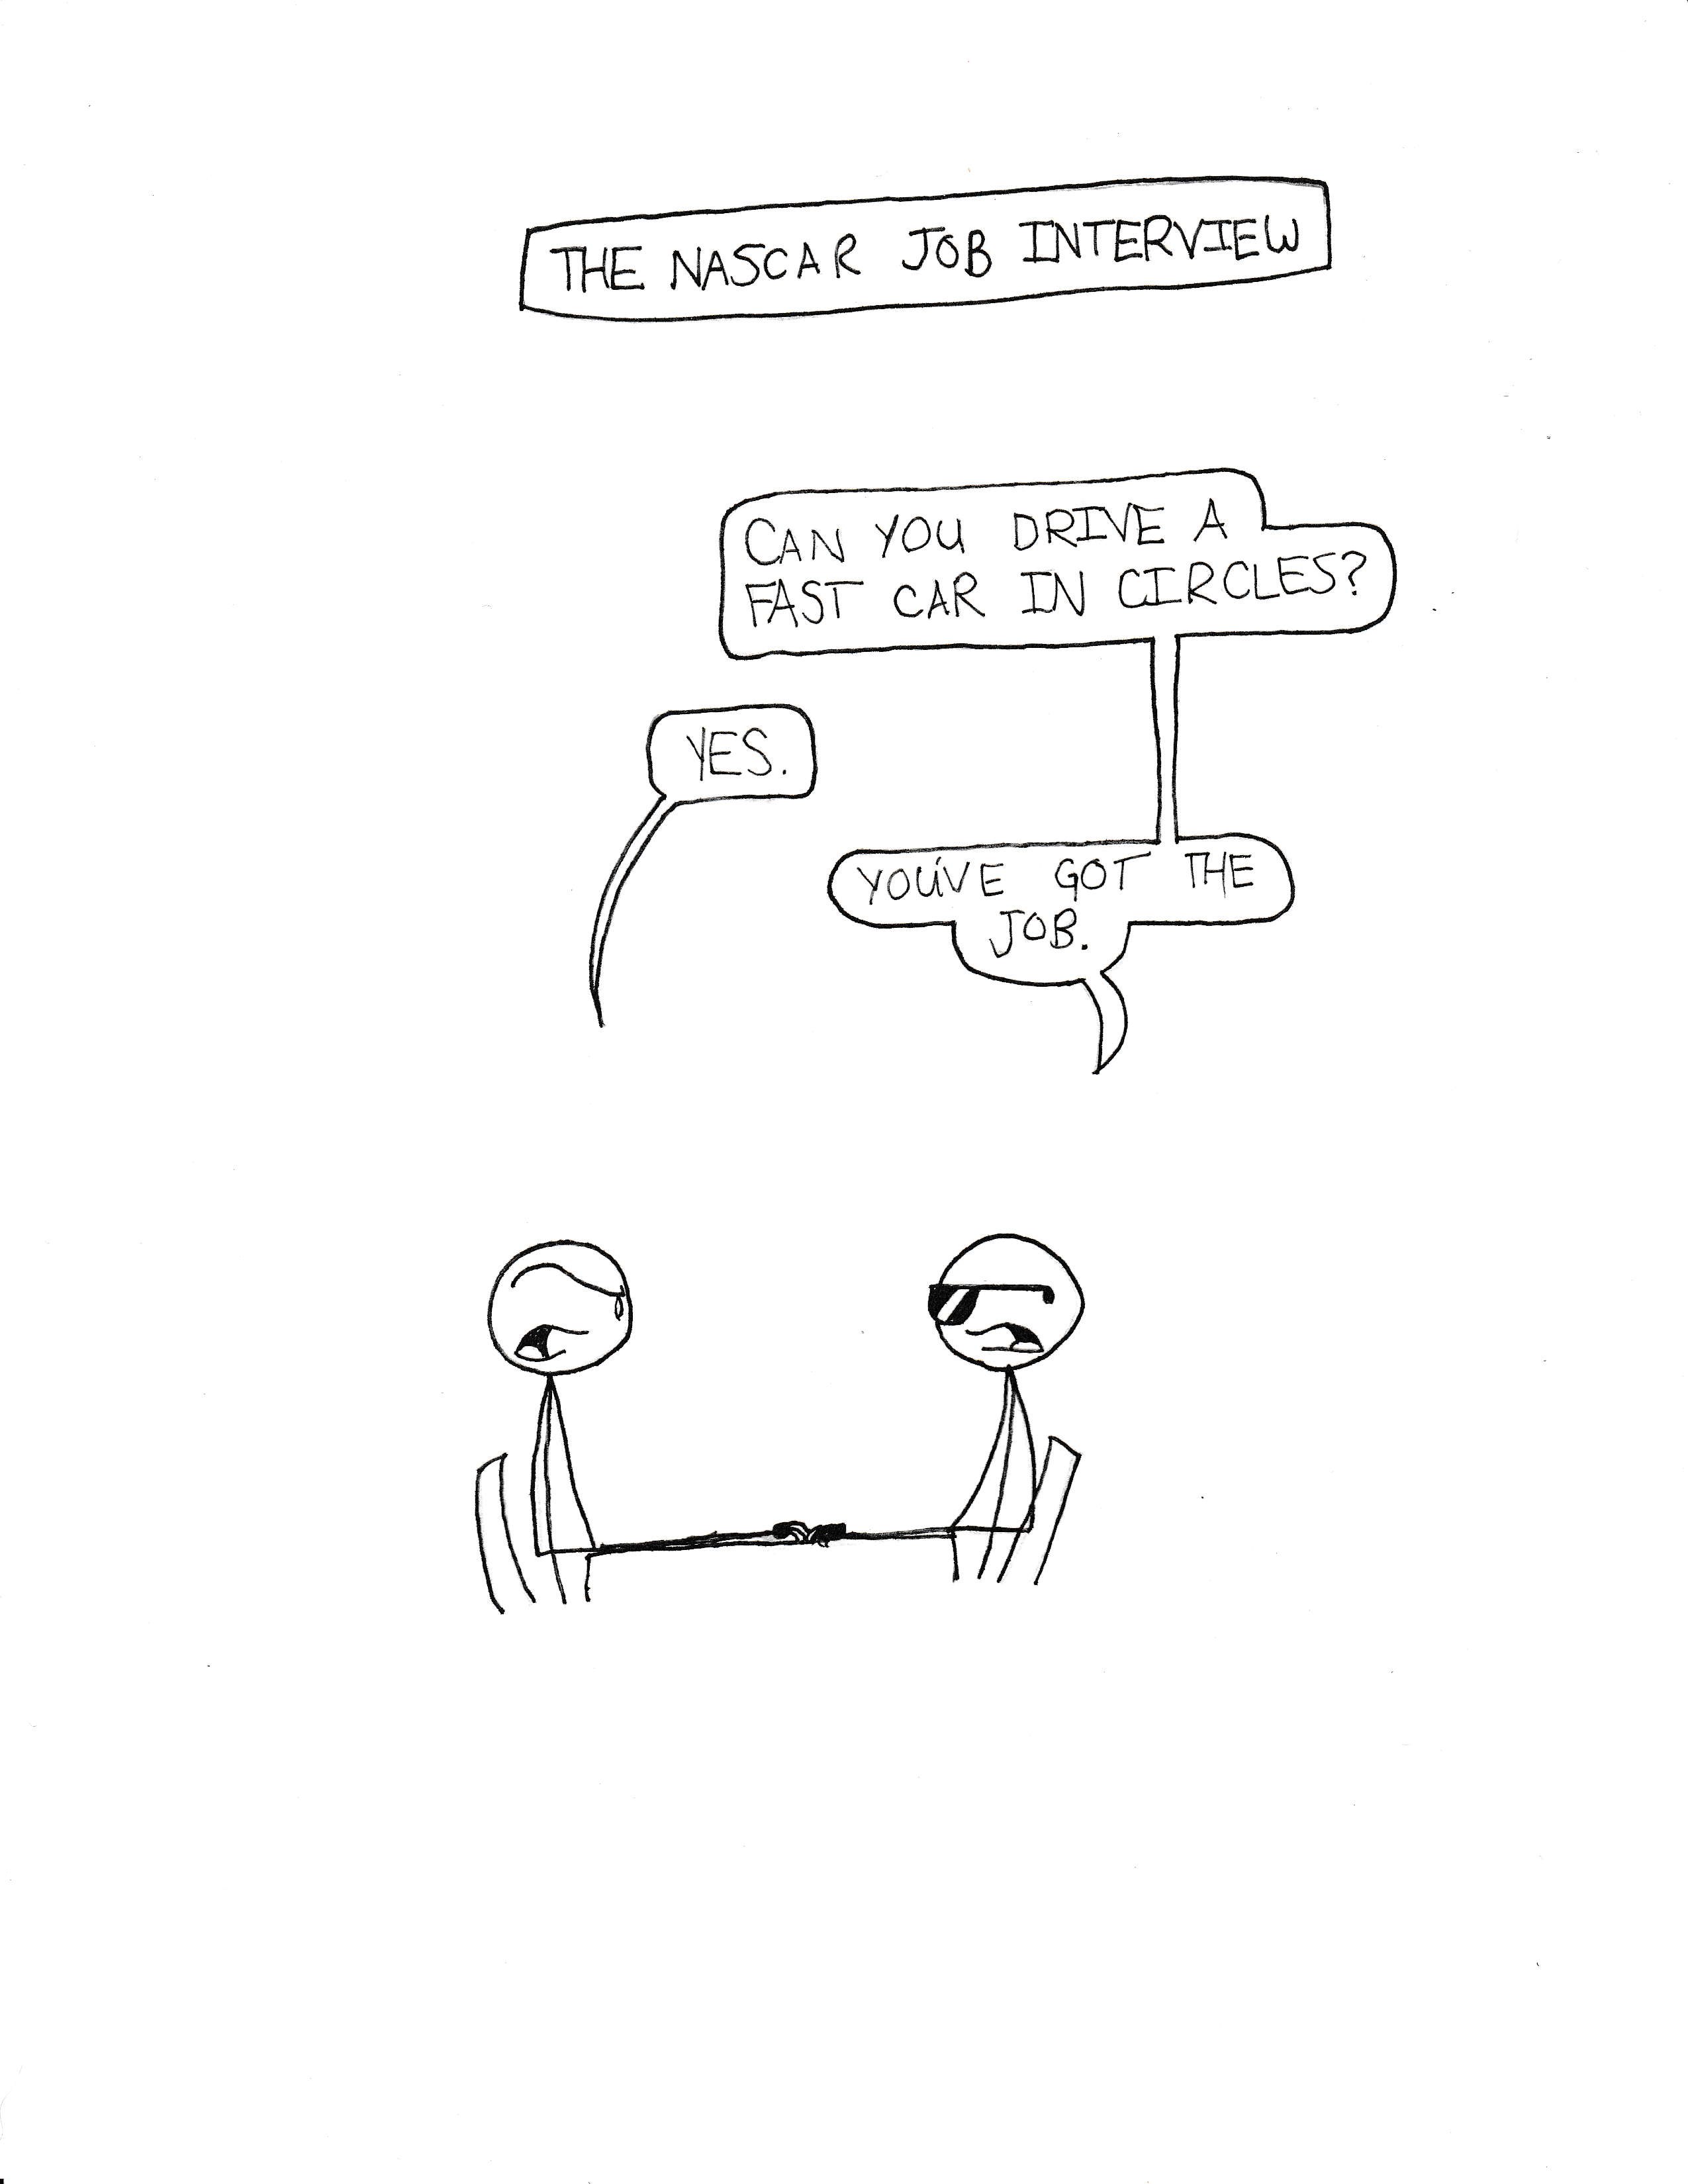 THE NASCAR JOB INTERVIEW
CAN YOU DRIVE A
FAST CAR IN CIRCLES?
YES.
YOU'VE GOT THE
JOB.